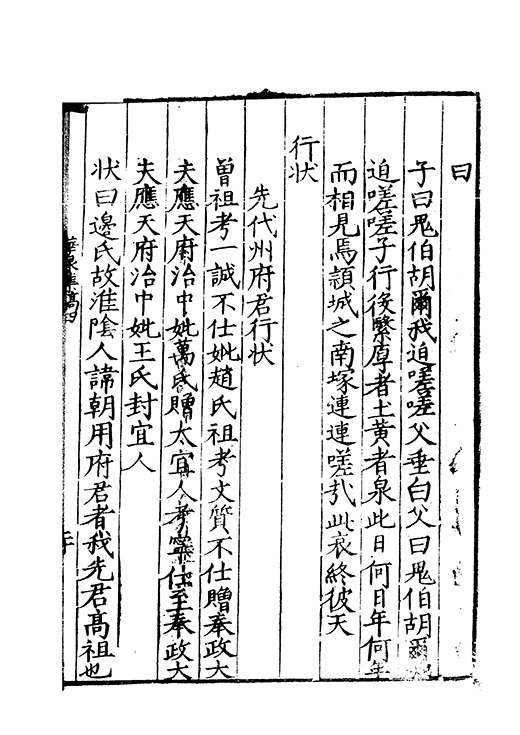 曰
子曰鬼伯胡爾我迫嗟嗟父垂白父曰鬼伯胡爾
迫嗟嗟子行後繄厚者土黄者泉此日何日年何年
而相見焉潁城之南塚連連嗟㢤此哀終彼天
行状
先代州府君行状
曾祖考一誠不仕妣趙氏祖考文質不仕贈奉政大
夫應天府治中妣萬氏贈太宜人考寧仕至奉政大
夫應天府治中妣王氏封宜人
状曰邊氏故淮隂人諱朝用府君者我先君髙祖也